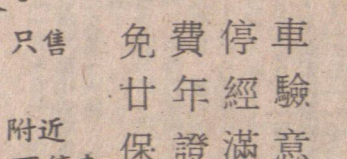 只售
附近
免費停車
廿年經驗
保證滿意